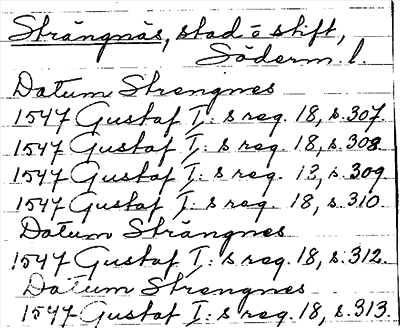 Strängnäs, stad o stift,
Söderm. l.
Datum Strengnes
1547 Gustaf I: s reg. 18, s. 307.
1547 Gustaf I: s reg. 18, s. 308.
1547 Gustaf I: s reg. 18, s. 309
1547 Gustaf I: s reg. 18, s. 310.
Datum Strängnes
1547 Gustaf I: s reg. 18, s. 312.
Datum Strengnes
1547 Gustaf I: s reg. 18, s. 313.